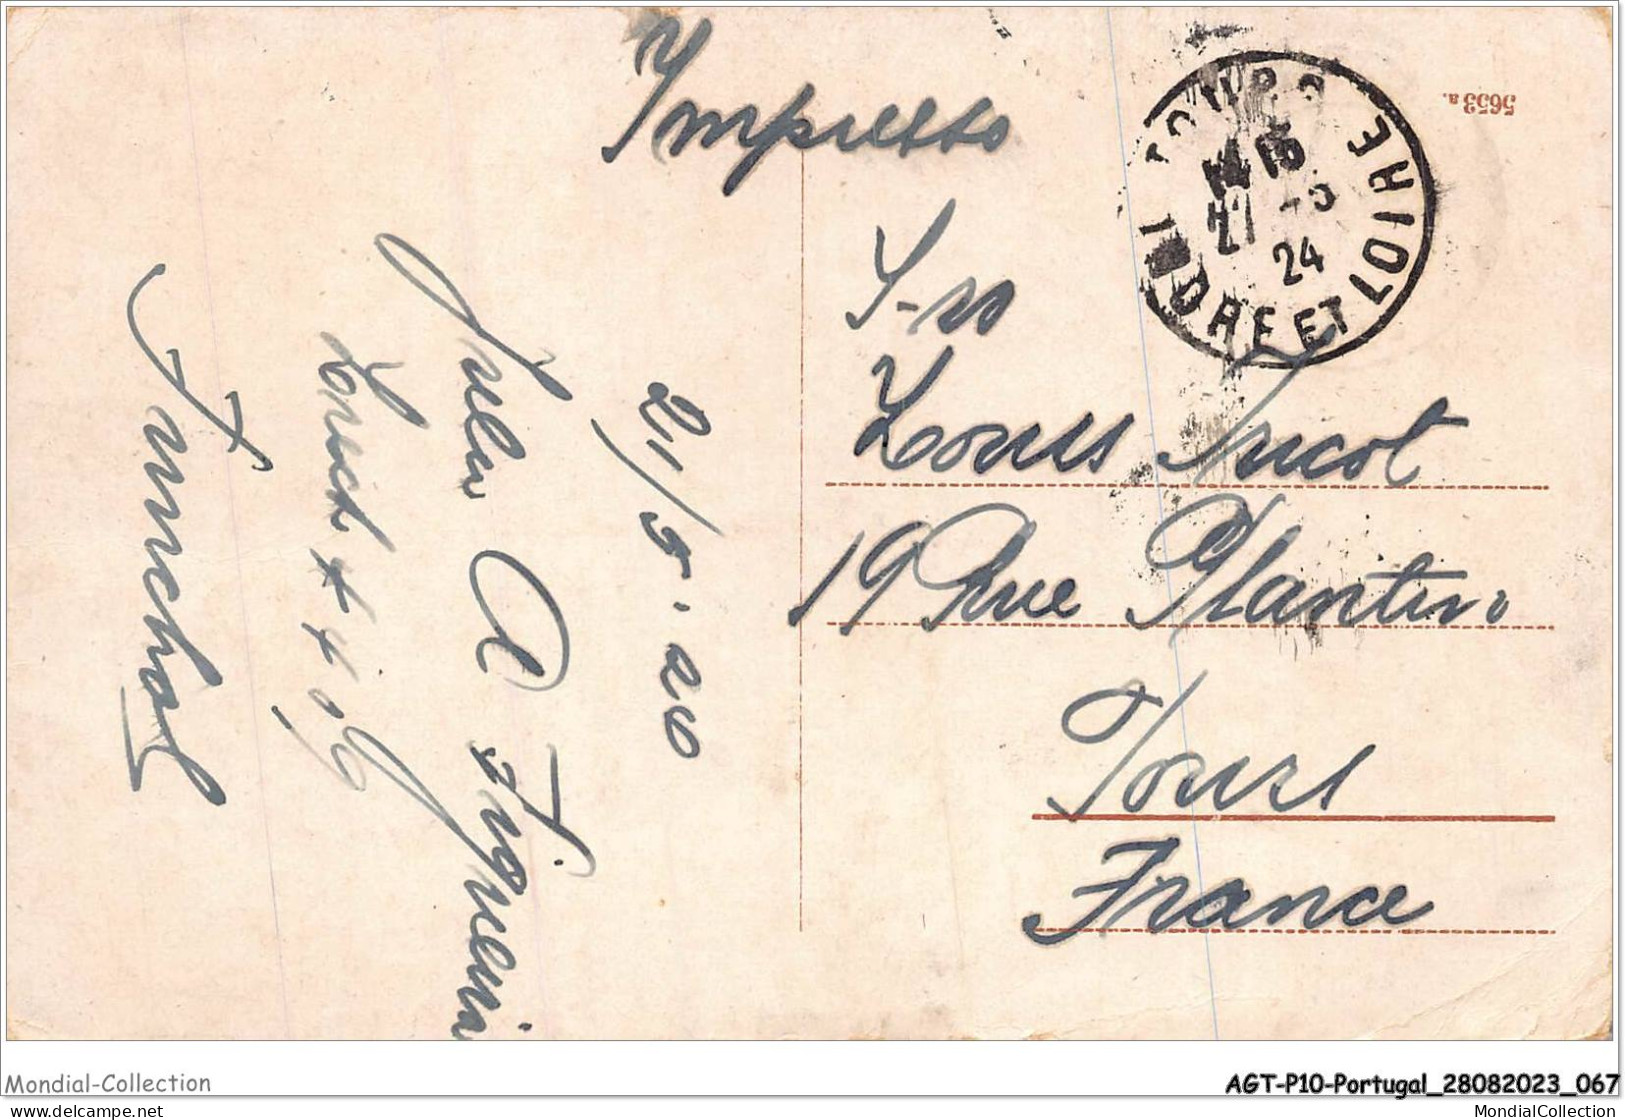 Impresso
5653a.
TOURS
14 15
27 -5
24
INDRE ET LOIRE
Louis Sucot
19 Rue Plantin
Tours
France
21/5.20
A Figueira
Funchal
Mondial-Collection
AGT-P10-Portugal_28082023_067
www.delcampe.net
MondialCollection